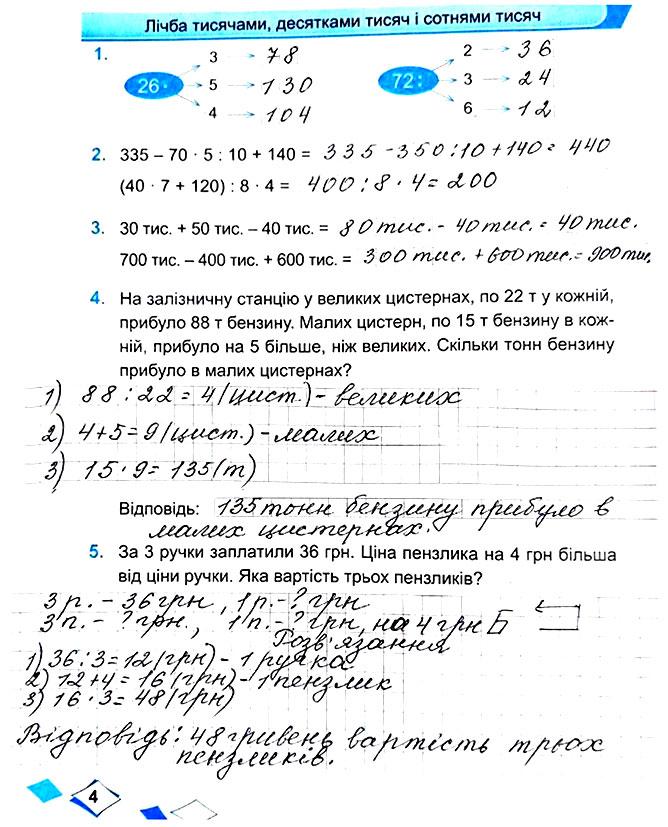 Лічба тисячами, десятками тисяч і сотнями тисяч
1.
26 · 3 → 78
5 → 130
4 → 104
72 : 2 → 36
3 → 24
6 → 12
2. 335 – 70 · 5 : 10 + 140 = 335 - 350 : 10 + 140 = 440
(40 · 7 + 120) : 8 · 4 = 400 : 8 · 4 = 200
3. 30 тис. + 50 тис. – 40 тис. = 80 тис. - 40 тис. = 40 тис.
700 тис. – 400 тис. + 600 тис. = 300 тис. + 600 тис. = 900 тис.
4. На залізничну станцію у великих цистернах, по 22 т у кожній,
прибуло 88 т бензину. Малих цистерн, по 15 т бензину в кож-
ній, прибуло на 5 більше, ніж великих. Скільки тонн бензину
прибуло в малих цистернах?
1) 88 : 22 = 4 (цист.) - великих
2) 4 + 5 = 9 (цист.) - малих
3) 15 · 9 = 135 (т)
Відповідь: 135 тонн бензину прибуло в
малих цистернах.
5. За 3 ручки заплатили 36 грн. Ціна пензлика на 4 грн більша
від ціни ручки. Яка вартість трьох пензликів?
3 р. - 36 грн, 1 р. - ? грн
3 п. - ? грн., 1 п. - ? грн, на 4 грн Б
Розв'язання
1) 36 : 3 = 12 (грн) - 1 ручка
2) 12 + 4 = 16 (грн) - 1 пензлик
3) 16 · 3 = 48 (грн)
Відповідь: 48 гривень вартість трьох
пензликів.
4